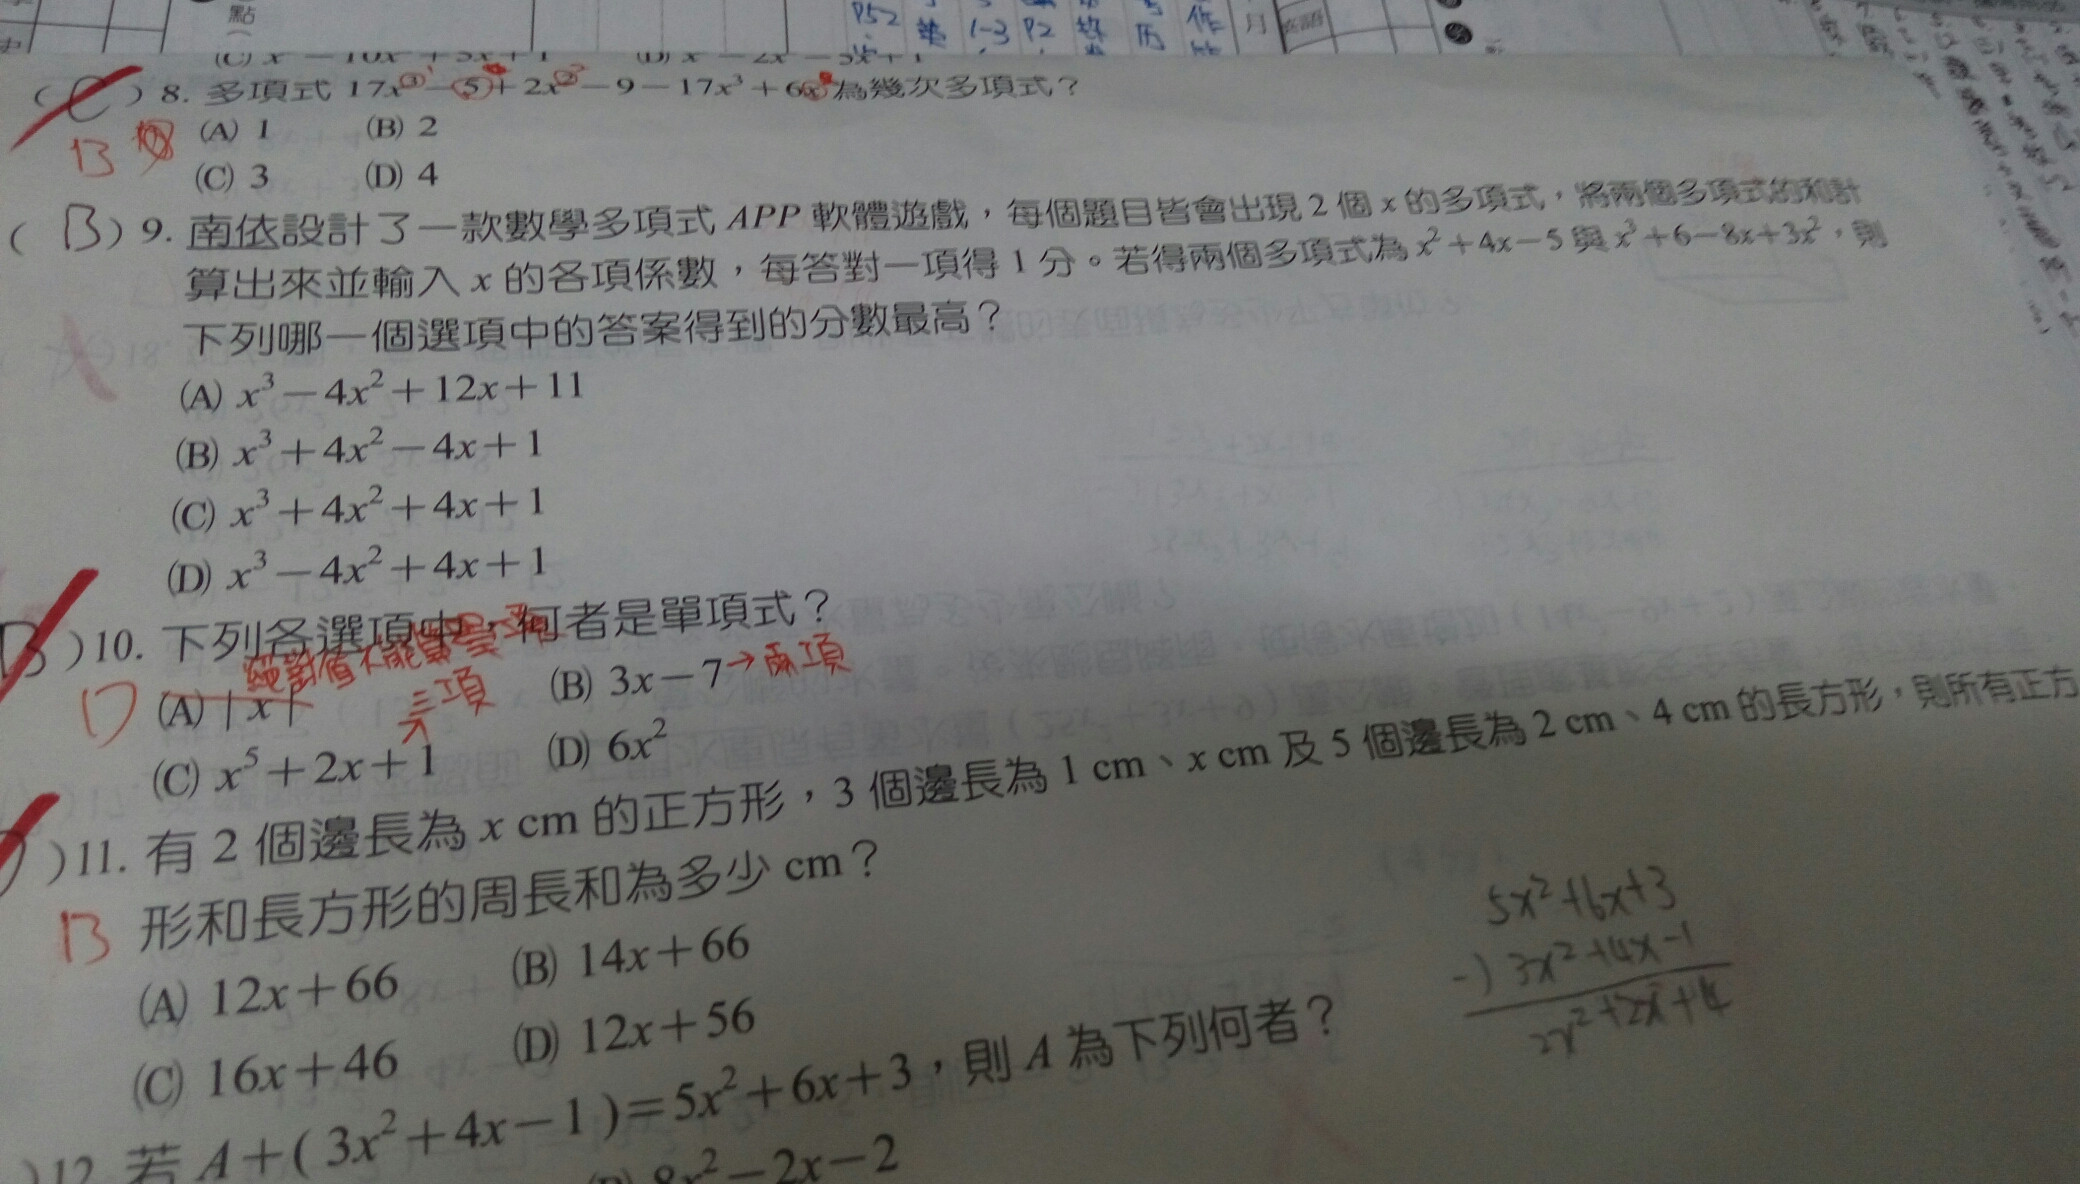 點
P52
1-3
P2
月
(C) 8. 多項式 17x³－5＋2x²－9－17x³＋6x 為幾次多項式？
B
(A) 1 (B) 2
(C) 3 (D) 4
(B) 9. 南依設計了一款數學多項式 APP 軟體遊戲，每個題目皆會出現 2 個 x 的多項式，將兩個多項式的和計
算出來並輸入 x 的各項係數，每答對一項得 1 分。若得兩個多項式為 x²＋4x－5 與 x³＋6－8x＋3x²，則
下列哪一個選項中的答案得到的分數最高？
(A) x³－4x²＋12x＋11
(B) x³＋4x²－4x＋1
(C) x³＋4x²＋4x＋1
(D) x³－4x²＋4x＋1
B )10. 下列各選項中，何者是單項式？
絕對值不能算是
D (A)｜x｜ (B) 3x－7→兩項
三項
(C) x⁵＋2x＋1 (D) 6x²
)11. 有 2 個邊長為 x cm 的正方形，3 個邊長為 1 cm、x cm 及 5 個邊長為 2 cm、4 cm 的長方形，則所有正方
B 形和長方形的周長和為多少 cm？
(A) 12x＋66 (B) 14x＋66
(C) 16x＋46 (D) 12x＋56
)12. 若 A＋( 3x²＋4x－1 )＝5x²＋6x＋3，則 A 為下列何者？
8x²－2x－2
5x²+6x+3
-) 3x²+4x-1
2x²+2x+4